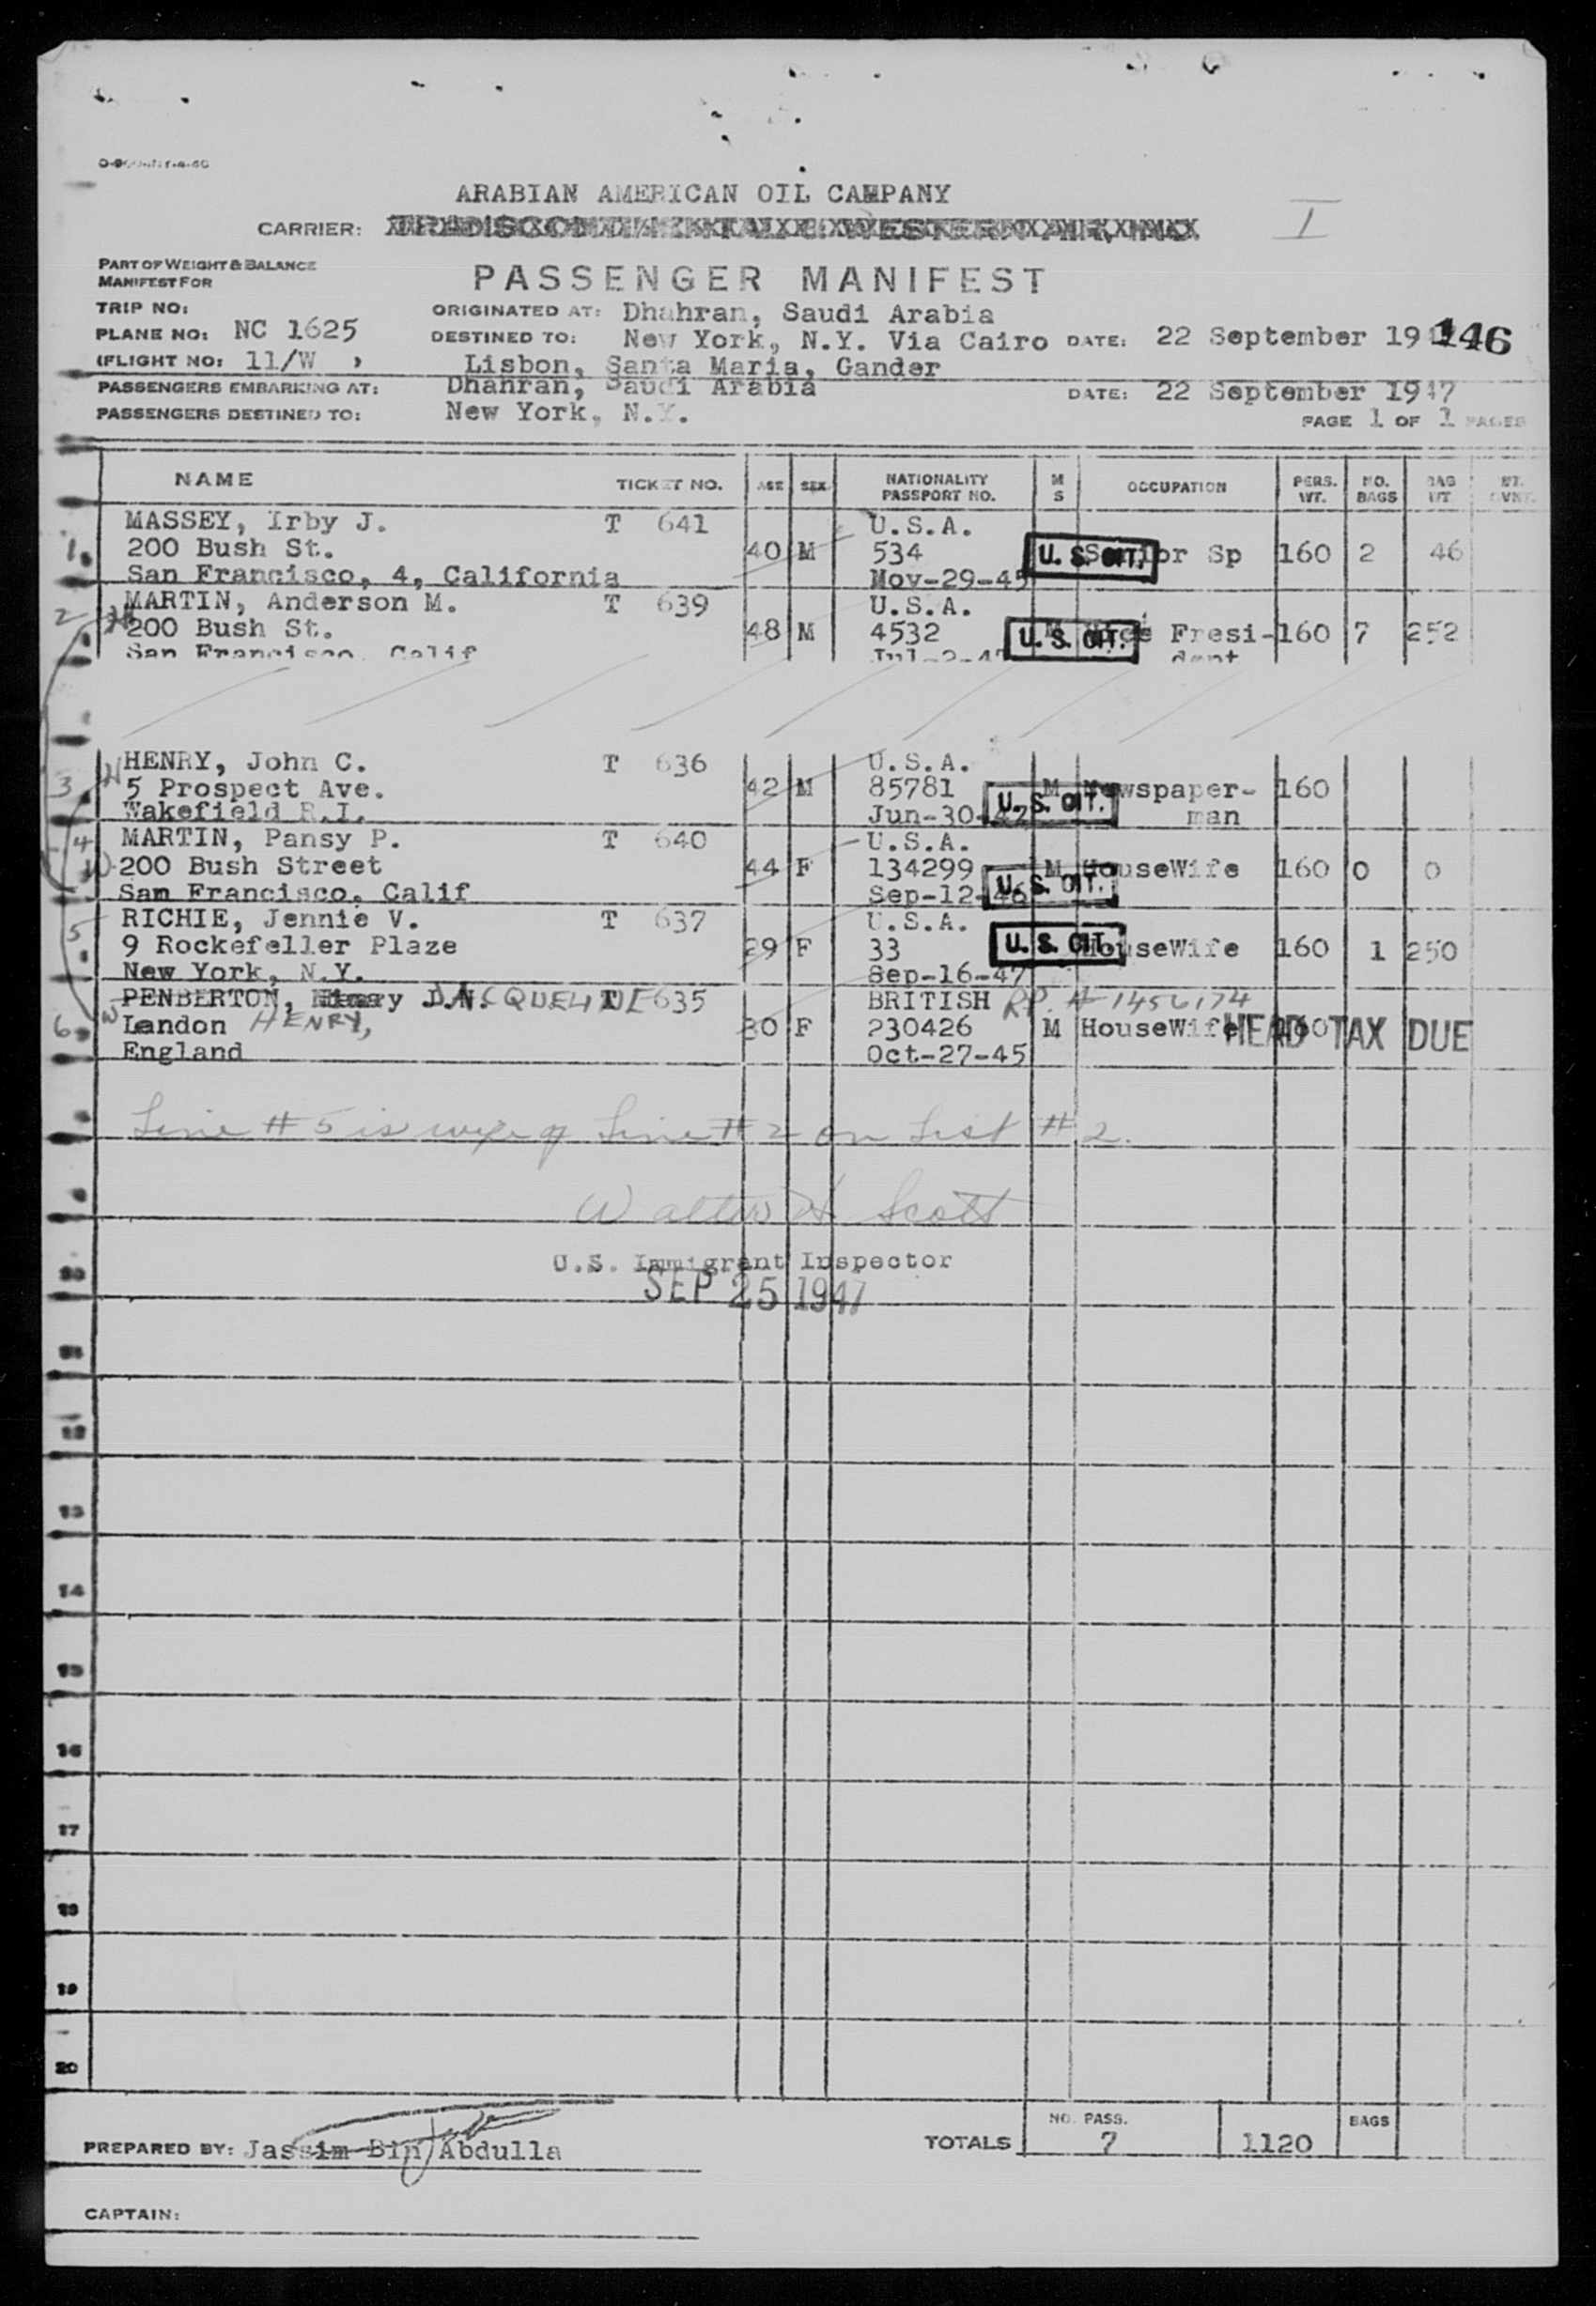 ARABIAN AMERICAN OIL CAMPANY
CARRIER:
I
PART OF WEIGHT & BALANCE
MANIFEST FOR
PASSENGER MANIFEST
TRIP NO:
ORIGINATED AT: Dhahran, Saudi Arabia
PLANE NO: NC 1625
DESTINED TO: New York, N.Y. Via Cairo DATE: 22 September 19 146
(FLIGHT NO: 11/W )
Lisbon, Santa Maria, Gander
PASSENGERS EMBARKING AT: Dhahran, Saudi Arabia DATE: 22 September 1947
PASSENGERS DESTINED TO: New York, N.Y. PAGE 1 OF 1 PAGES
NAME TICKET NO. AGE SEX NATIONALITY PASSPORT NO. M S OCCUPATION PERS. WT. NO. BAGS BAG WT
MASSEY, Irby J. T 641 U.S.A.
1. 200 Bush St. 40 M 534 U. S. CIT. Senior Sp 160 2 46
San Francisco, 4, California Nov-29-45
MARTIN, Anderson M. T 639 U.S.A.
2 H 200 Bush St. 48 M 4532 M U. S. CIT. Vice Fresi- 160 7 252
San Francisco, Calif Jul-2-47 dent
HENRY, John C. T 636 U.S.A.
3 H 5 Prospect Ave. 42 M 85781 M Newspaper- 160
Wakefield R.I. Jun-30-47 U. S. CIT. man
MARTIN, Pansy P. T 640 U.S.A.
4 W 200 Bush Street 44 F 134299 M HouseWife 160 0 0
San Francisco, Calif Sep-12-46 U. S. CIT.
RICHIE, Jennie V. T 637 U.S.A.
5 9 Rockefeller Plaze 29 F 33 U. S. CIT. HouseWife 160 1 250
New York, N.Y. Sep-16-47
PENBERTON, J.N. JACQUELINE T 635 BRITISH R.P. # 1456174
6. W London HENRY, 30 F 230426 M HouseWife 160 HEAD TAX DUE
England Oct-27-45
Line # 5 is wife of Line # 2 on List # 2.
Walter H Scott
U.S. Immigrant Inspector
SEP 25 1947
10
11
12
13
14
15
16
17
18
19
20
PREPARED BY: Jassim Bin Abdulla
TOTALS NO. PASS. 7 1120 BAGS
CAPTAIN: